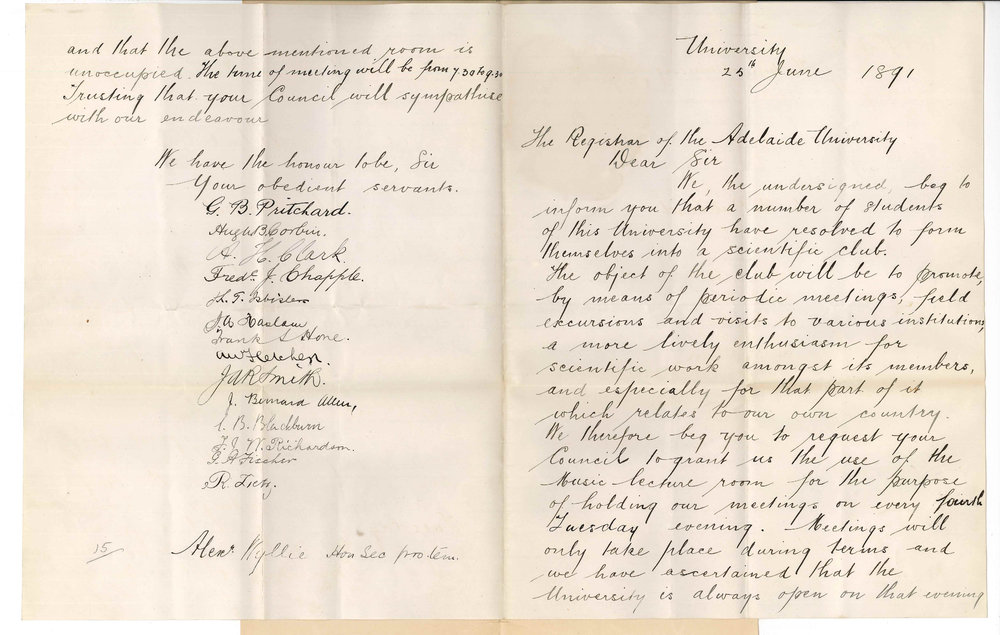 University
25th June 1891
The Registrar of the Adelaide University
Dear Sir
We, the undersigned, beg to
inform you that a number of students
of this University have resolved to form
themselves into a scientific club.
The object of the club will be to promote,
by means of periodic meetings, field
excursions and visits to various institutions,
a more lively enthusiasm for
scientific work amongst its members,
and especially for that part of it
which relates to our own country.
We therefore beg you to request your
Council to grant us the use of the
Music lecture room for the purpose
of holding our meetings on every fourth
Tuesday evening. Meetings will
only take place during terms and
we have ascertained that the
University is always open on that evening
and that the above mentioned room is
unoccupied. The time of meeting will be from 7.30 to 9.30
Trusting that your Council will sympathise
with our endeavour
We have the honour to be, Sir
Your obedient servants.
G. B. Pritchard.
Hugh B Corbin.
A. H. Clark.
Fredc. J. Chapple.
J.A. Haslam
Frank S Hone.
AW Fletcher.
J A R Smith.
J. Bernard Allen,
C. B. Blackburn
F. J. W. Richardson.
G. A. Fischer
R. Tietz.
15/
Alexr Wyllie Hon Sec pro tem.